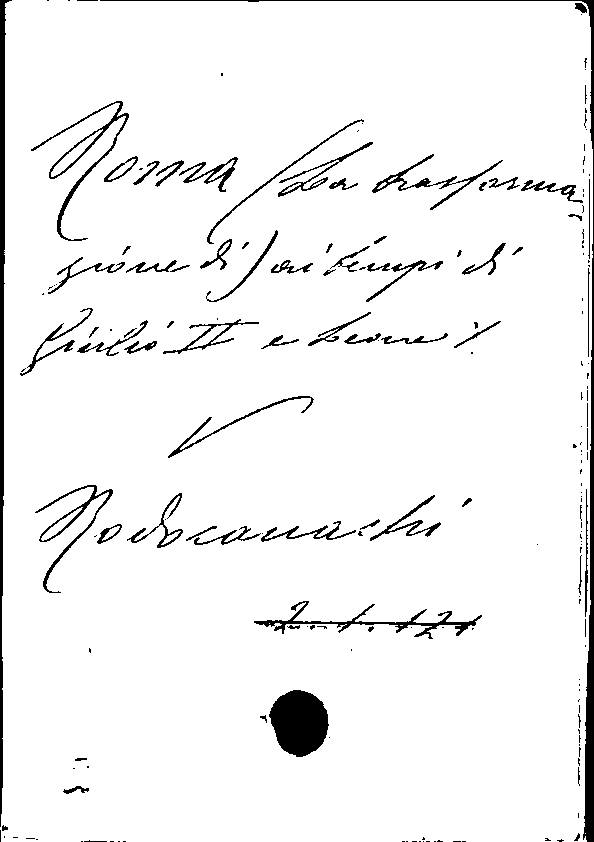 Roma (La trasforma
zione di) ai tempi di
Giulio II e Leone X
V
Rodocanachi
2. 1. 121